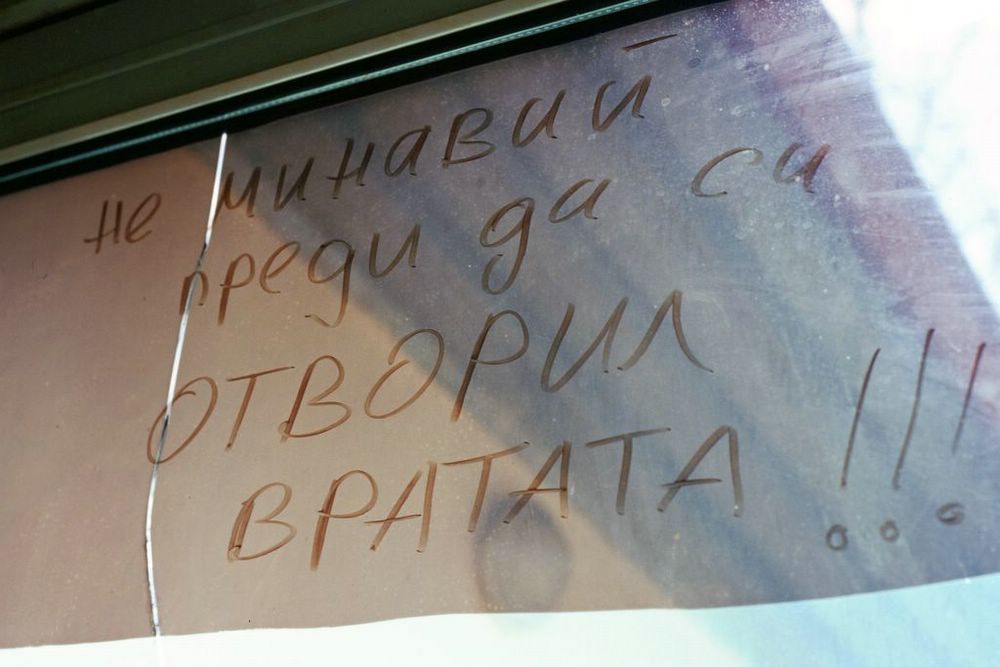 не минавай
преди да си
ОТВОРИЛ
ВРАТАТА !!!